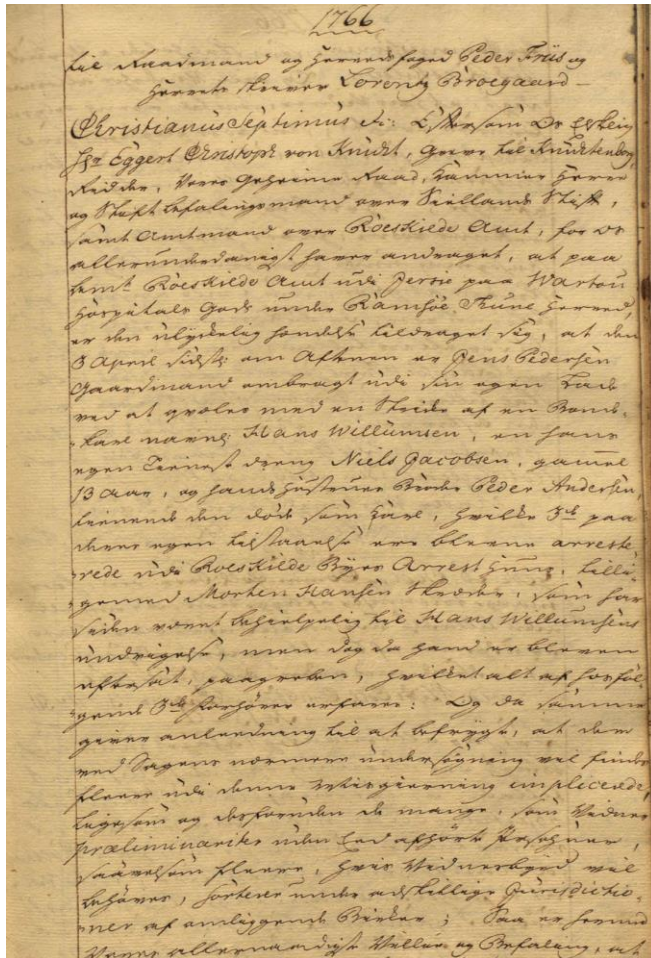 1766
til Raadmand og Herredsfoged Peder Friis og
Herreds skriver Lorentz Broegaard
Christianus Septimus etc: Eftersom Os Elskelig
Hr. Eggert Christoph von Knuth, Greve til Knuthenborg,
Ridder, Vores Geheime Raad, Kammer Herre
og Stift befalingsmand over Siellands Stift,
samt Amtmand over Roeskilde Amt, for Os
allerunderdanigst haver andraget, at paa
bemte Roeskilde Amt udi Jersie paa Wartou
Hospitals Gods under Ramsøe Thune Herred,
er den ulykkelig hendelse tildraget sig, at den
3 April sidstl: om Aftenen er Jens Pedersen
Gaardmand ombragt udi sin egen Lade
ved at qvæles med en Strikke af en Bonde-
karl navnl: Hans Willumsen, en hans
egen Tienest dreng Niels Jacobsen, gammel
13 Aar, og hands Hustrues Broder Peder Andersen,
tienende den døde som Karl, hvilke 3de paa
deres egen tilstaaelse ere blevne arreste-
rede udi Roeskilde Byes Arresthuus, tilli-
gemed Morten Hansen Skræder, som har
siden været behielpelig til Hans Willumsens
undvigelse, men dog da hand er bleven
eftersat, paagreben, hvilket alt af hosføl-
gende 3de forhører erfares: Og da samme
giver anledning til at befrygte, at der
ved Sagens nærmere undersøgning vel findes
fleere udi denne Misgierning implicerede,
ligesom og desforuden de mange, som Vidner
præliminariter uden Eed afhørte Personer,
saavelsom fleere, hvis Vidnesbyrd vel
behøves, sorterer under adskillige Jurisdictio-
ner af omliggende Birker; Saa er hermed
Vores allernaadigste Villie og Befaling, at